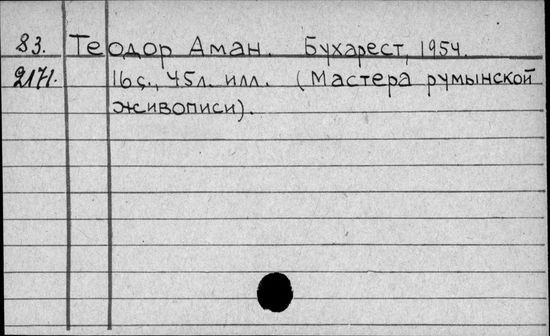 83. Теодор Аман. Бухарест, 1954.
2171. 16 с., 45 л. илл. (Мастера румынской
живописи).